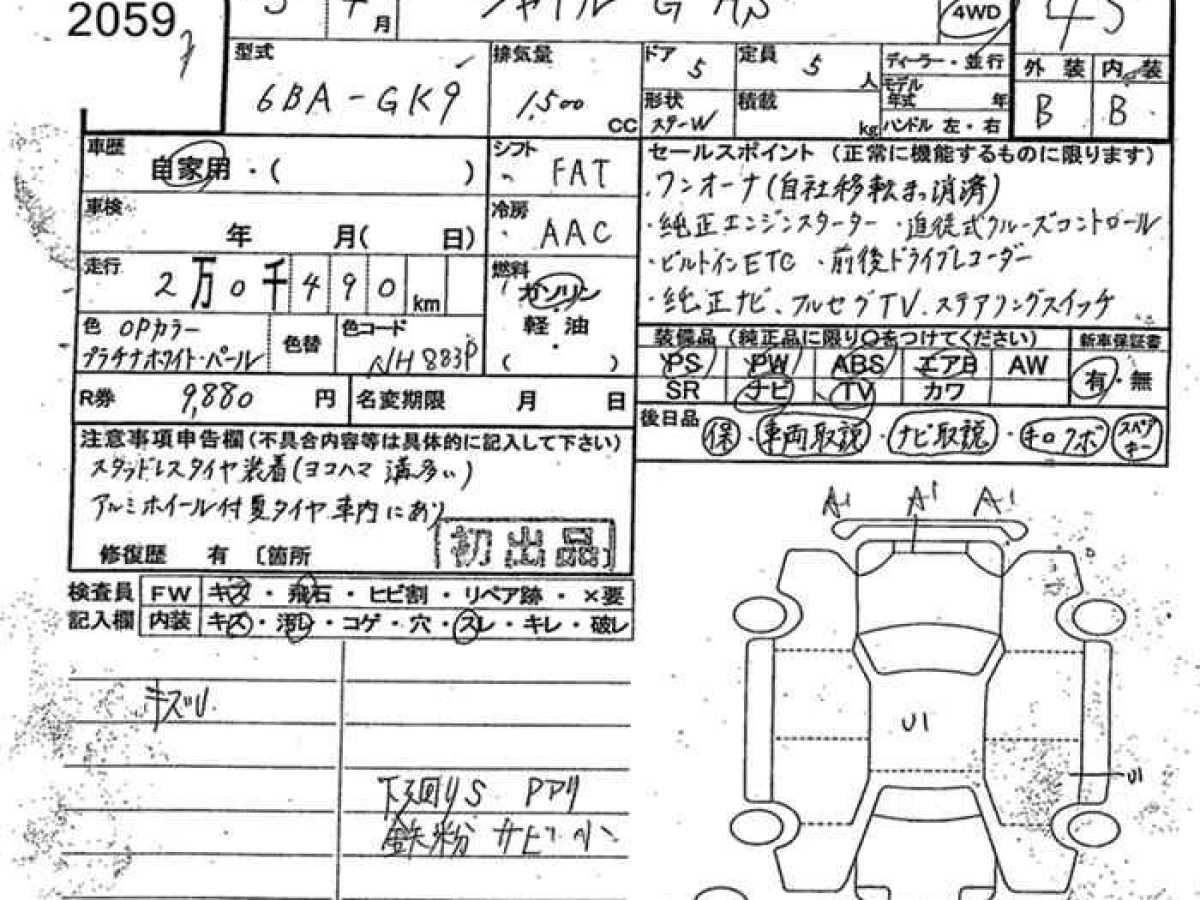 2059
月
4WD
型式
6BA-GK9
排気量
1,500
CC
ドア 5
定員 5 人
形状 ステーW
積載 kg
ディーラー・並行
モデル年式 年
ハンドル 左・右
外装 内装
B B
車歴
自家用・( )
シフト FAT
冷房 AAC
セールスポイント (正常に機能するものに限ります)
・ワンオーナ(自社移転まっ消済)
・純正エンジンスターター ・追従式クルーズコントロール
・ビルトインETC ・前後ドライブレコーダー
・純正ナビ、フルセグTV、ステアリングスイッチ
車検
年 月( 日)
走行
2万0千490 km
燃料
ガソリン
軽・油
( ・ )
色 OPカラー
プラチナホワイト・パール
色替
色コード
NH883P
装備品 (純正品に限り○をつけてください)
PS PW ABS エアB AW
SR ナビ TV カワ
新車保証書
有・無
R券 9,880 円
名変期限 月 日
後日品 保・車両取説・ナビ取説・キロクボ スペアキー
注意事項申告欄(不具合内容等は具体的に記入して下さい)
スタッドレスタイヤ装着(ヨコハマ 溝多い)
アルミホイール付夏タイヤ車内にあり
修復歴 有 〔箇所
初出品
A1 A1 A1
検査員 FW キズ・飛石・ヒビ割・リペア跡・×要
記入欄 内装 キズ・汚レ・コゲ・穴・スレ・キレ・破レ
U1
U1
下廻りS Pアリ
鉄粉